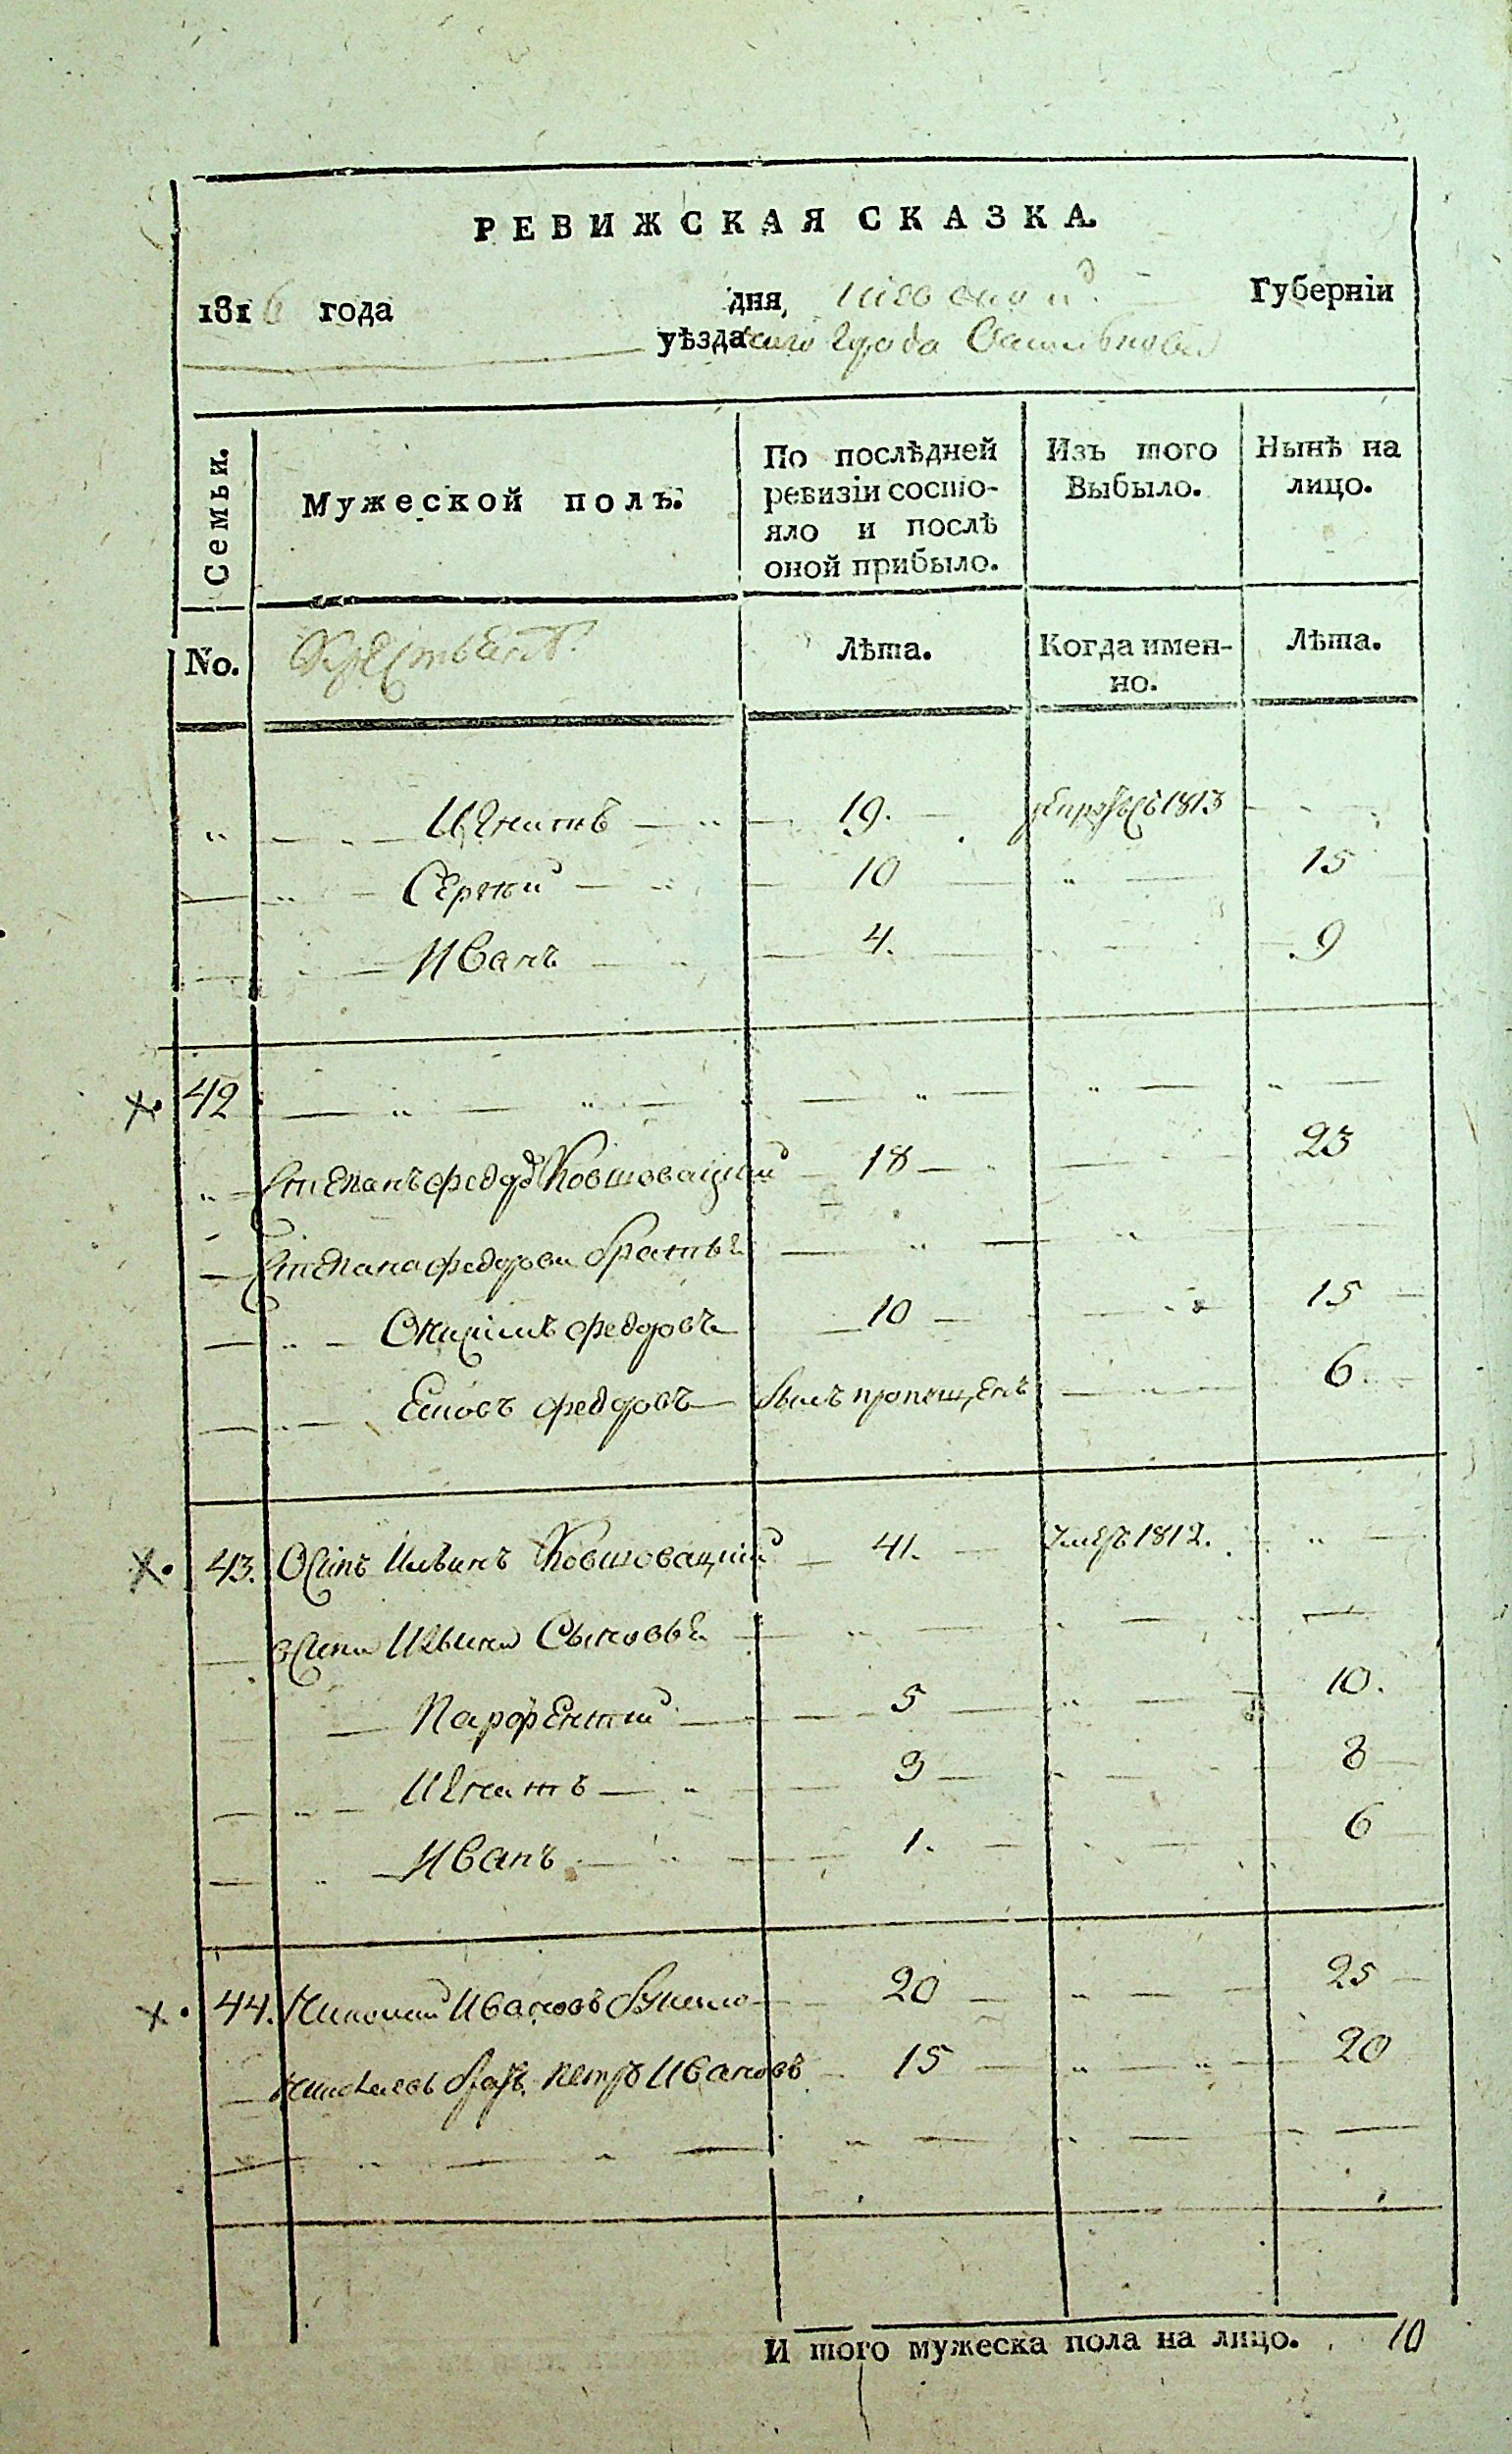 РЕВИЖСКАЯ СКАЗКА.
1816 года дня, Киевской Губерніи
уѣзда города Василькова
Семьи. Мужеской полъ. По послѣдней ревизіи состо- Изъ того Выбыло. Нынѣ на лицо.
яло и послѣ
оной прибыло.
No. Лѣта. Когда имен- Лѣта.
но.
Игнатъ 19. 1813
Сергий 10 15
Иванъ 4. 9
42
Степанъ Федоровъ Ковшовацкий 18 23
Степана Федорова братья
Федоровъ 10 15
Федоровъ былъ пропущенъ 6.
43. Осипъ Ильинъ Ковшовацкий 41. умеръ 1812.
Осипа Ильина Сыновья
Парфентий 5 10.
Игнатъ 3 8
Иванъ 1. 6
44. Николай Ивановъ 20 25
братъ Петръ Ивановъ 15 20
И того мужеска пола на лицо. 10